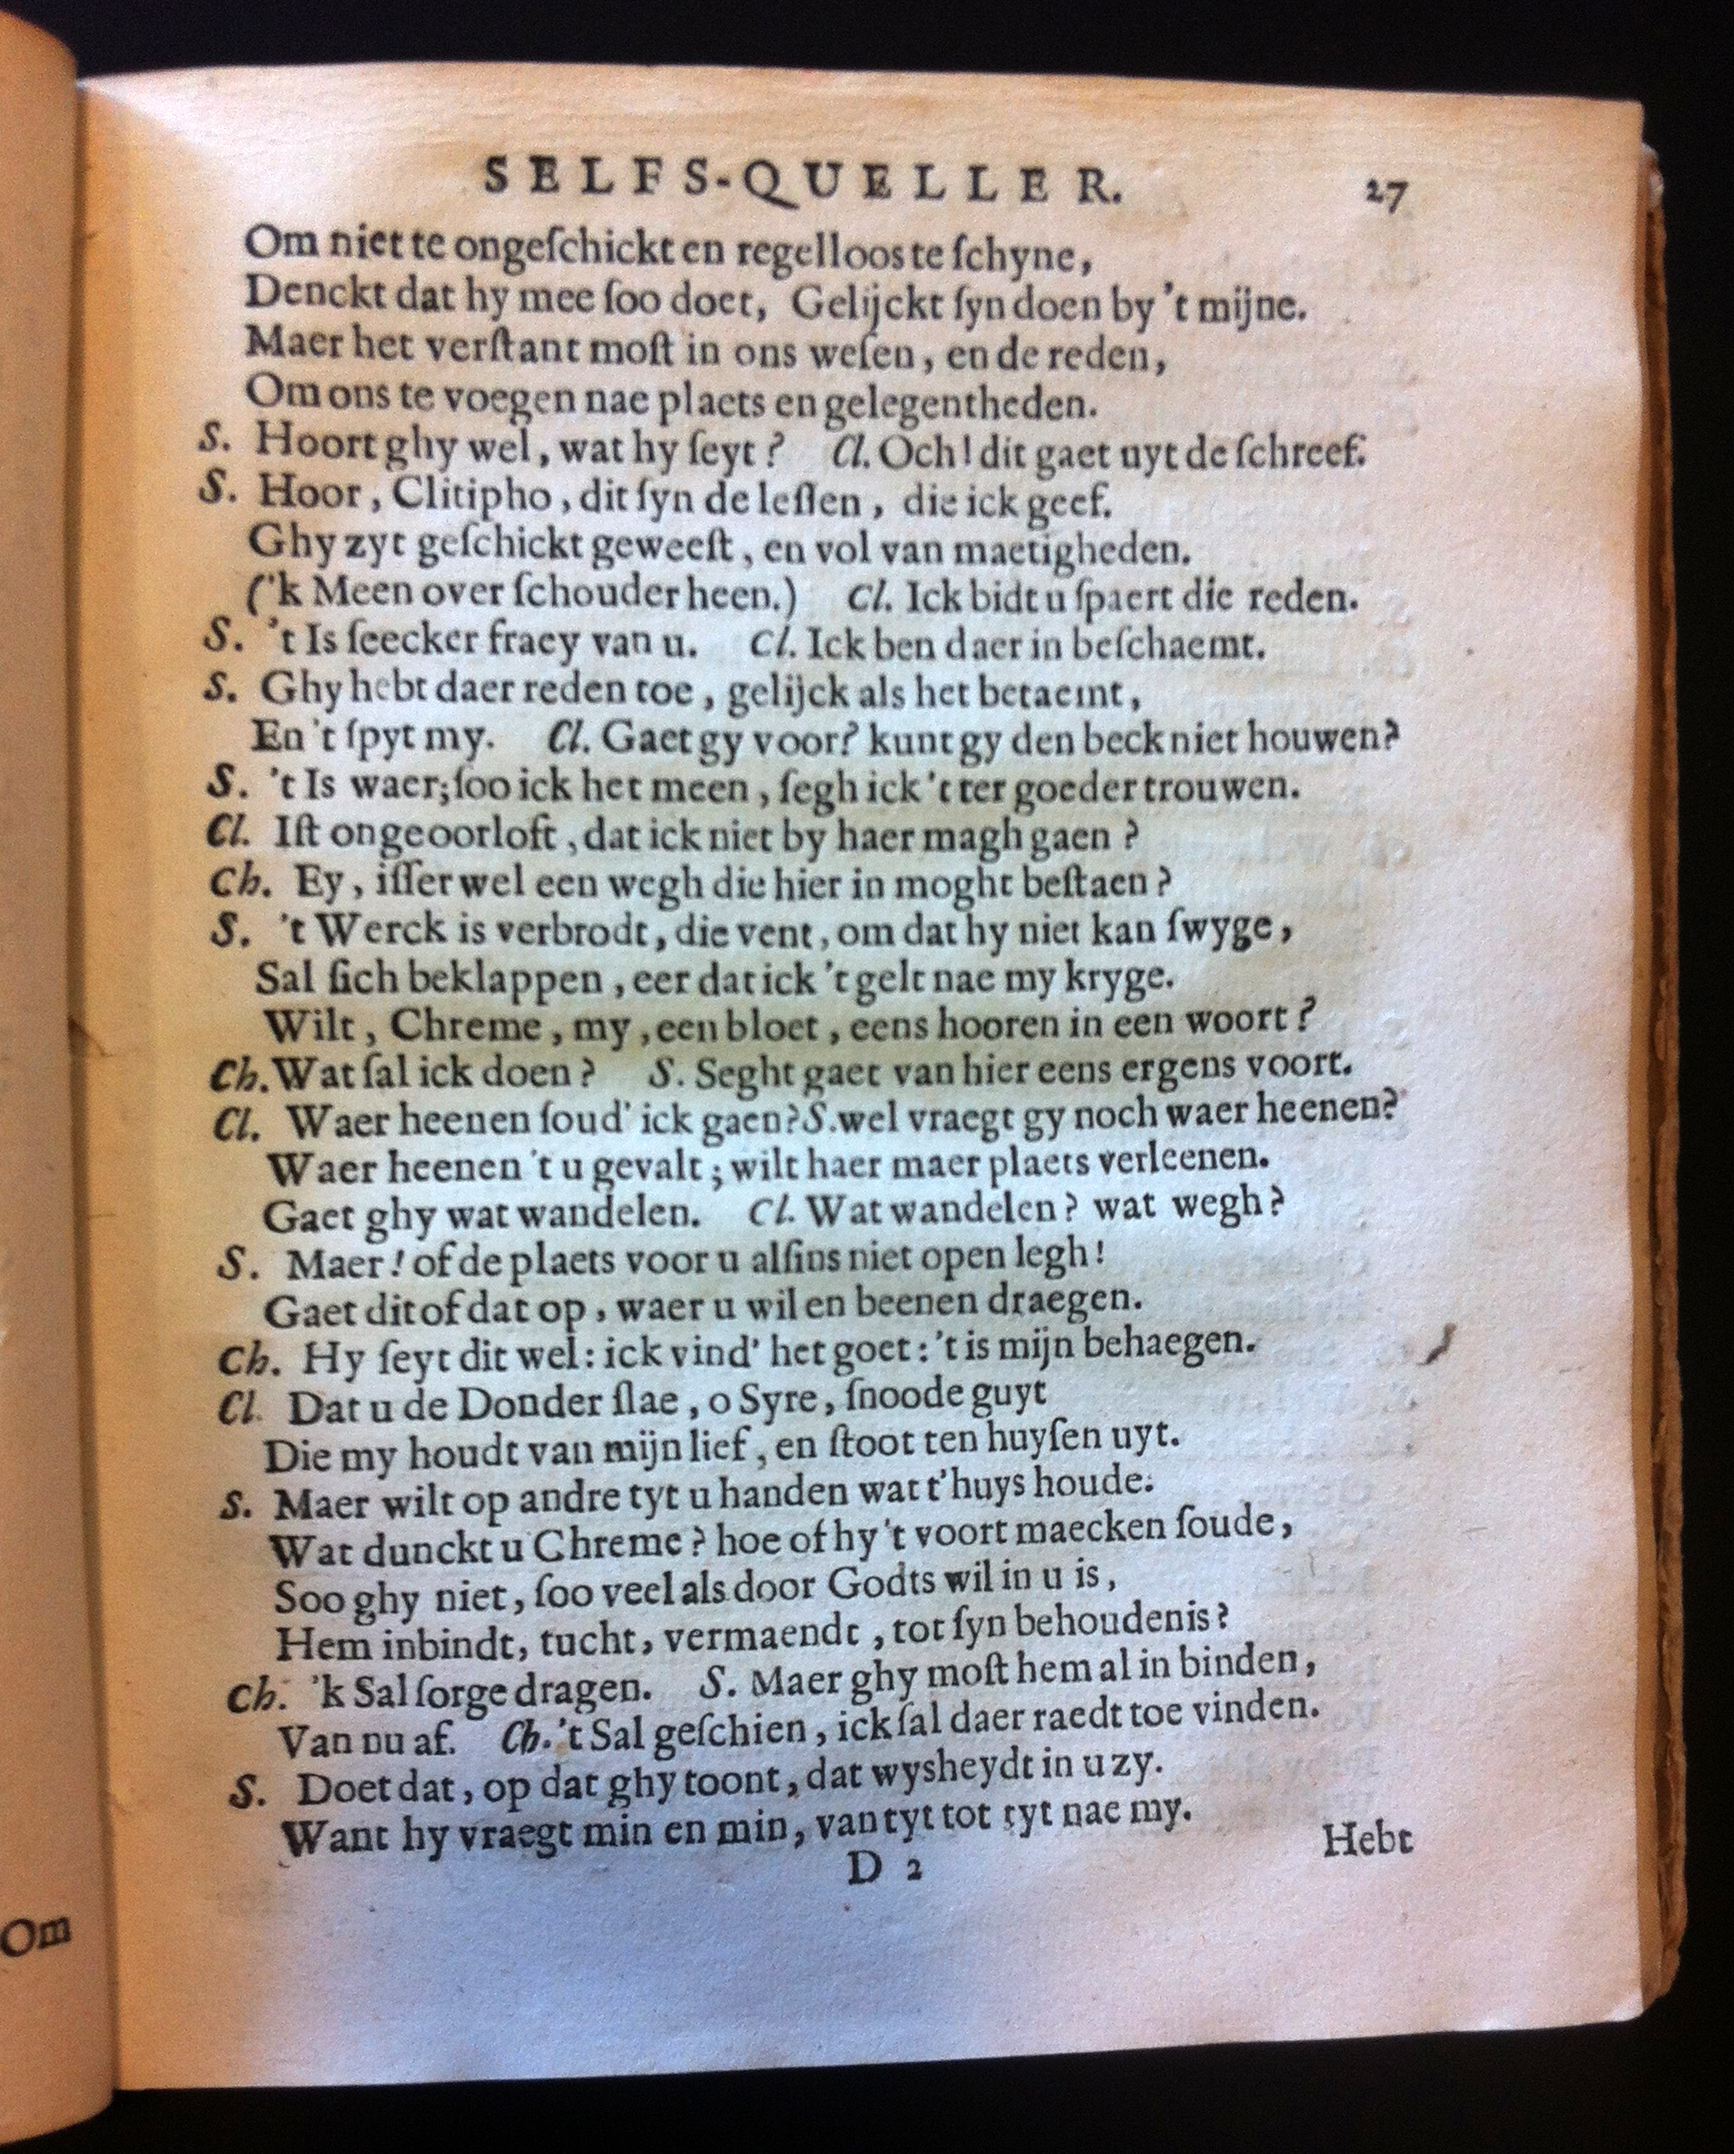 SELFS-QUELLER. 27
Om niet te ongeſchickt en regelloos te ſchyne,
Denckt dat hy mee ſoo doet, Gelijckt ſyn doen by 't mijne.
Maer het verſtant moſt in ons weſen, en de reden,
Om ons te voegen nae plaets en gelegentheden.
S. Hoort ghy wel, wat hy ſeyt? Cl. Och! dit gaet uyt de ſchreef.
S. Hoor, Clitipho, dit ſyn de leſſen, die ick geef.
Ghy zyt geſchickt geweeſt, en vol van maetigheden.
('k Meen over ſchouder heen.) Cl. Ick bidt u ſpaert die reden.
S. 't Is ſeecker fraey van u. Cl. Ick ben daer in beſchaemt.
S. Ghy hebt daer reden toe, gelijck als het betaemt,
En 't ſpyt my. Cl. Gaet gy voor? kunt gy den beck niet houwen?
S. 't Is waer; ſoo ick het meen, ſegh ick 't ter goeder trouwen.
Cl. Iſt ongeoorloft, dat ick niet by haer magh gaen?
Ch. Ey, iſſer wel een wegh die hier in moght beſtaen?
S. 't Werck is verbrodt, die vent, om dat hy niet kan ſwyge,
Sal ſich beklappen, eer dat ick 't gelt nae my kryge.
Wilt, Chreme, my, een bloet, eens hooren in een woort?
Ch. Wat ſal ick doen? S. Seght gaet van hier eens ergens voort.
Cl. Waer heenen ſoud' ick gaen? S. wel vraegt gy noch waer heenen?
Waer heenen 't u gevalt; wilt haer maer plaets verleenen.
Gaet ghy wat wandelen. Cl. Wat wandelen? wat wegh?
S. Maer! of de plaets voor u alſins niet open legh!
Gaet dit of dat op, waer u wil en beenen draegen.
Ch. Hy ſeyt dit wel: ick vind' het goet: 't is mijn behaegen.
Cl. Dat u de Donder ſlae, o Syre, ſnoode guyt
Die my houdt van mijn lief, en ſtoot ten huyſen uyt.
S. Maer wilt op andre tyt u handen wat t'huys houde.
Wat dunckt u Chreme? hoe of hy 't voort maecken ſoude,
Soo ghy niet, ſoo veel als door Godts wil in u is,
Hem inbindt, tucht, vermaendt, tot ſyn behoudenis?
Ch. 'k Sal ſorge dragen. S. Maer ghy moſt hem al in binden,
Van nu af. Ch. 't Sal geſchien, ick ſal daer raedt toe vinden.
S. Doet dat, op dat ghy toont, dat wysheydt in u zy.
Want hy vraegt min en min, van tyt tot tyt nae my.
D 2 Hebt
Om